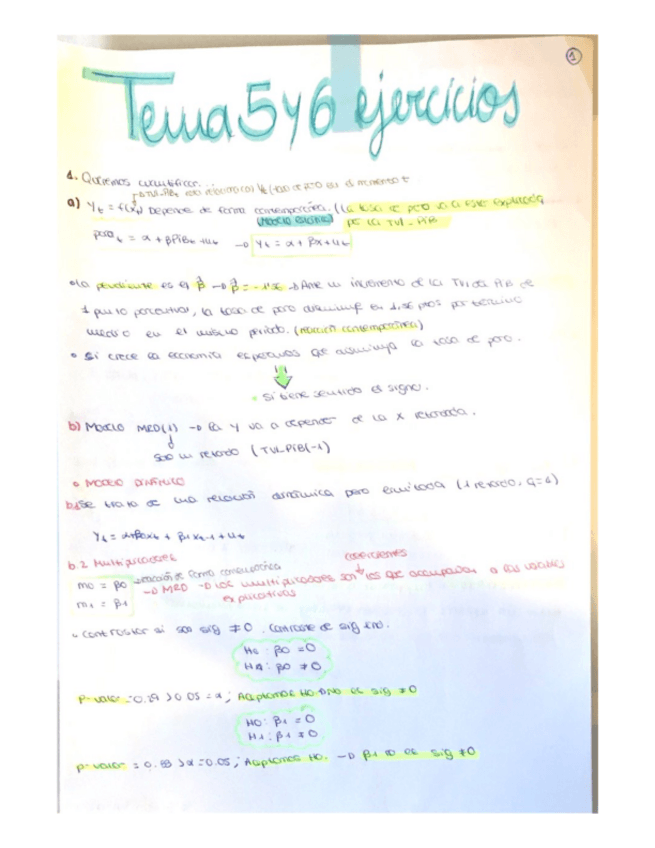 1
Tema 5 y 6 ejercicios
1. Queremos cuantificar...
TVL PIB en el momento t
a) Yt = f(Xt) Depende de forma contemporánea. (La tasa de paro va a estar explicada
(Modelo estático) por la TVL-PIB
parot = α + βPIBt + ut → Yt = α + βx + ut
• La pendiente es el β̂ → β̂ = -1'56 → Ante un incremento de la TVL del PIB de
1 punto porcentual, la tasa de paro disminuye en 1.56 ptos por término
medio en el mismo periodo. (relación contemporánea)
• Si crece la economía esperamos que disminuya la tasa de paro.
• Si tiene sentido el signo.
b) Modelo MRD(1) → la Y va a depender de la X retardada.
solo un retardo (TVLPIB(-1)
• MODELO DINÁMICO
b.1 Se trata de una relación dinámica pero limitada (1 retardo, q=1)
Yt = α+β0xt + β1xt-1 + ut
b.2 Multiplicadores
coeficientes
m0 = β0 relación de forma contemporánea
→ MRD → Los multiplicadores son los que acompañan a las variables
m1 = β1
explicativas
• Contrastar si son sig ≠ 0. Contraste de sig ind.
H0: β0 = 0
HA: β0 ≠ 0
p-valor = 0.29 > 0.05 = α; Aceptamos H0 → No es sig ≠ 0
H0: β1 = 0
H1: β1 ≠ 0
p-valor = 0.88 > α = 0.05; Aceptamos H0. → β1 no es sig ≠ 0